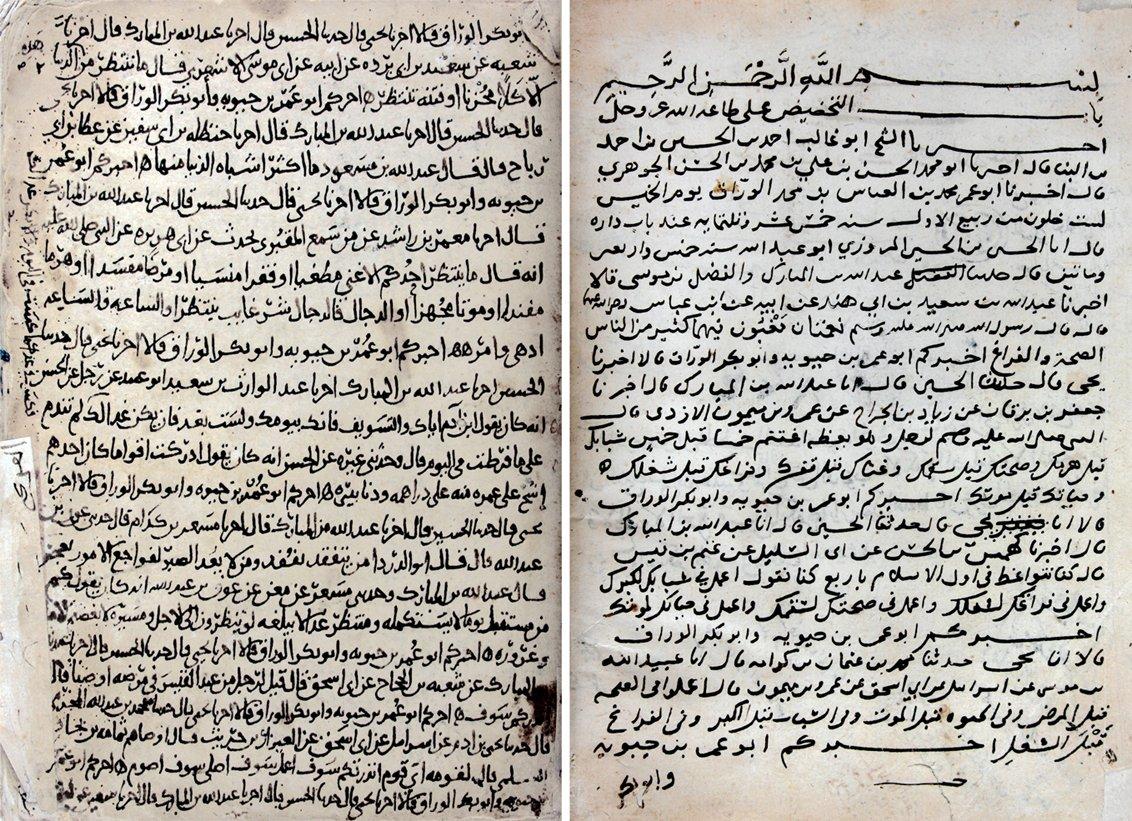 بسم الله الرحمن الرحيم
باب التحضيض على طاعة الله عز وجل
اخبرنا الشيخ ابو غالب احمد بن الحسن بن احمد
بن البنا قال اخبرنا ابو محمد الحسن بن علي بن محمد بن الحسن الجوهري
قال اخبرنا ابو عمر محمد بن العباس بن محمد الوراق يوم الخميس
لست خلون من ربيع الاول سنة خمس عشر وثلثمايه عند باب داره
قال انا الحسين بن الحسن المروزي ابو عبد الله سنة خمس واربعين
ومائتين قال عبد الله بن المبارك والفضل بن موسى قالا
اخبرنا عبد الله بن سعيد بن ابي هند عن ابيه عن ابن عباس
قال قال رسول الله صلى الله عليه وسلم نعمتان مغبون فيهما كثير من الناس
الصحة والفراغ اخبركم ابو عمر بن حيويه وابو بكر الوراق قالا اخبرنا
يحيى قال حدثنا الحسين قال انا عبد الله بن المبارك قال اخبرنا
جعفر بن برقان عن زياد بن الجراح عن عمرو بن ميمون الاودي قال
النبي صلى الله عليه وسلم لرجل وهو يعظه اغتنم خمسا قبل خمس شبابك
قبل هرمك وصحتك قبل سقمك وغناك قبل فقرك وفراغك قبل شغلك
وحياتك قبل موتك اخبركم ابو عمر بن حيويه وابو بكر الوراق
قالا انا يحيى قال حدثنا الحسين قال انا عبد الله بن المبارك
قال اخبرنا كهمس بن الحسن عن ابي السليل عن غنيم بن قيس
قال كنا نتواعظ في اول الاسلام باربع كنا نقول اعمل في شبابك لكبرك
واعمل في فراغك لشغلك واعمل في صحتك لسقمك واعمل في حياتك لموتك
اخبركم ابو عمر بن حيويه وابو بكر الوراق
قالا انا يحيى حدثنا محمد بن عثمان بن كرامه قال انا عبيد الله
بن موسى عن اسرائيل عن ابي اسحق عن عمرو بن ميمون قال اعملوا في الصحة
قبل المرض وفي الحيوة قبل الموت وفي الشباب قبل الكبر وفي الفراغ
قبل الشغل اخبركم ابو عمر بن حيويه
وابو بكر
وابو بكر الوراق قالا اخبرنا يحيى قال حدثنا الحسين قال اخبرنا عبد الله بن المبارك قال اخبرنا
شعبه عن سعيد بن ابي برده عن ابيه عن ابي موسى الاشعري قال ما ننتظر من الدنيا
الا كلا محزنا او فتنه تنتظر اخبركم ابو عمر بن حيويه وابو بكر الوراق قالا اخبرنا يحيى
قال حدثنا الحسين قال اخبرنا عبد الله بن المبارك قال اخبرنا حنظله بن ابي سفين عن عطا بن ابي
رباح قال قال عبد الله بن مسعود ما اكثر اشباه الدنيا منها اخبركم ابو عمر
بن حيويه وابو بكر الوراق قالا اخبرنا يحيى قال حدثنا الحسين قال اخبرنا عبد الله بن المبارك
قال اخبرنا معمر بن راشد عن من سمع المقبري يحدث عن ابي هريره عن النبي صلى الله عليه
انه قال ما ينتظر احدكم الا غنى مطغيا او فقرا منسيا او مرضا مفسدا او هرما
مفندا او موتا مجهزا او الدجال فالدجال شر غايب ينتظر او الساعه والساعه
ادهى وامر اخبركم ابو عمر بن حيويه وابو بكر الوراق قالا اخبرنا يحيى قال حدثنا
الحسين اخبرنا عبد الله بن المبارك اخبرنا عبد الوارث بن سعيد ابو عبيد عن رجل عن الحسن
انه كان يقول ابن ادم اياك والتسويف فانك بيومك ولست بغد فان يكن غد لك لم تندم
على ما فرطت في اليوم قال وحدثني غيره عن الحسن انه كان يقول ادركت اقواما كان احدهم
اشح على عمره منه على دراهمه ودنانيره اخبركم ابو عمر بن حيويه وابو بكر الوراق قالا اخبرنا
يحيى قال حدثنا الحسين قال اخبرنا عبد الله بن المبارك قال اخبرنا مسعر بن كدام قال حدثني عون بن
عبد الله قال قال ابو الدردا من يتفقد يفقد ومن لا يعد الصبر لفواجع الامور يعجز
قال عبد الله بن المبارك وحدثني مسعر عن معن عن عون بن عبد الله انه كان يقول كم
من مستقبل يوما لا يستكمله ومنتظر غدا لا يبلغه لو تنظرون الى الاجل ومسيره لابغضتم الامل
وغروره اخبركم ابو عمر بن حيويه وابو بكر الوراق قالا اخبرنا يحيى قال حدثنا الحسين قال اخبرنا
المبارك عن شعبه بن الحجاج عن ابي اسحق قال قيل لرجل من عبد القيس في مرضه اوصنا قال
سوف اخبركم ابو عمر بن حيويه وابو بكر الوراق قالا اخبرنا يحيى قال
قال حدثنا يحيى بن ادم عن اسرايل عن ابي اسحق عن العيزار بن حريث قال اوصاهم ثمامه بن بجاد
السلمي قال لقومه اي قوم انذرتكم سوف اعمل سوف اصلي سوف اصوم اخبركم ابو عمر
بن حيويه وابو بكر الوراق قالا اخبرنا يحيى قال حدثنا الحسين قال اخبرنا عبد الله بن المبارك قال اخبرنا